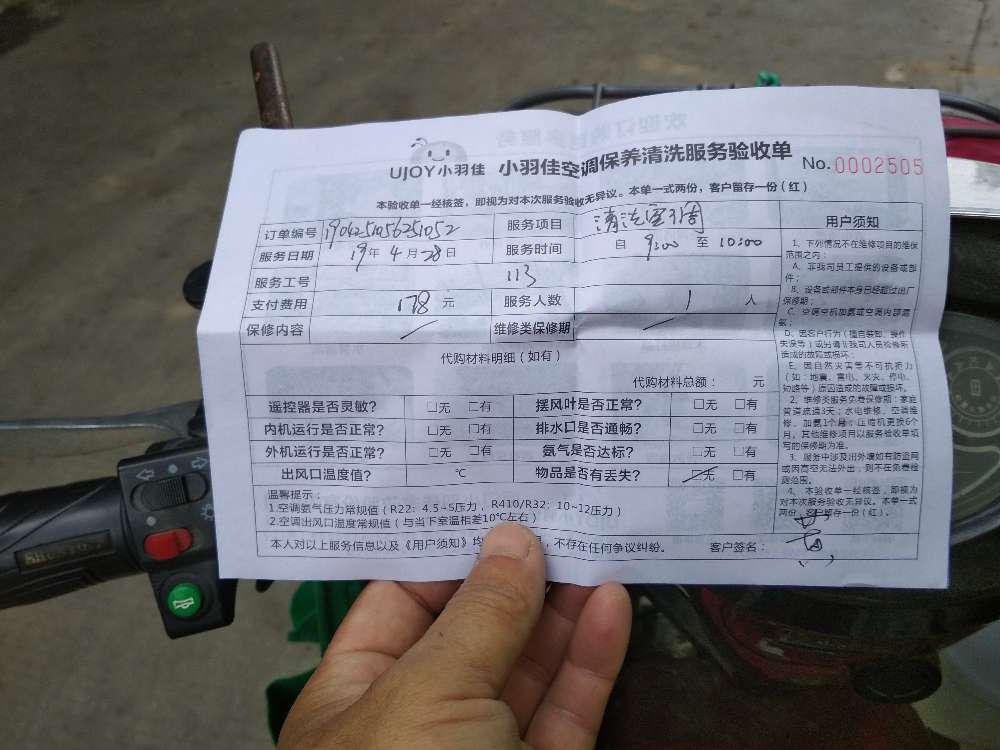 UJOY小羽佳 小羽佳空调保养清洗服务验收单 No.0002505
本验收单一经核签，即视为对本次服务验收无异议。本单一式两份，客户留存一份（红）
订单编号 服务项目 清洗空调
服务日期 19年4月28日 服务时间 自 9:00 至 10:00
服务工号 113
支付费用 178 元 服务人数 1 人
保修内容 / 维修类保修期 /
代购材料明细（如有）
代购材料总额： 元
遥控器是否灵敏? □无 □有 摆风叶是否正常? □无 □有
内机运行是否正常? □无 □有 排水口是否通畅? □无 □有
外机运行是否正常? □无 □有 氨气是否达标? □无 □有
出风口温度值? ℃ 物品是否有丢失? □无 □有
温馨提示：
1.空调氨气压力常规值（R22：4.5~5压力，R410/R32：10~12压力）
2.空调出风口温度常规值（与当下室温相差10℃左右）
本人对以上服务信息以及《用户须知》均 ，不存在任何争议纠纷。 客户签名：
用户须知
1、下列情况不在维修项目的维保
范围之内：
A、非我司员工提供的设备或部
件；
B、设备或部件本身已经超过出厂
保修期；
C、空调空机加氨或空调内部漏
氨；
D、因客户行为（擅自装卸、操作
失误等）或另请非我司人员检修所
造成的故障或损坏；
E、因自然灾害等不可抗拒力
（如：地震、雷电、火灾、停电、
短路等）原因造成的故障或损坏。
2、维修类服务免费保修期：家庭
管道疏通3天；水电维修、空调维
修、加氨1个月；压缩机更换6个
月，其他维修项目以服务验收单填
写的保修期为准。
3、服务中涉及出外墙如有防盗网
或因高空无法外出，则不在免费检
测范围。
4、本验收单一经核签，即视为
对本次服务验收无异议。本单一式
两份，客户留存一份（红）。